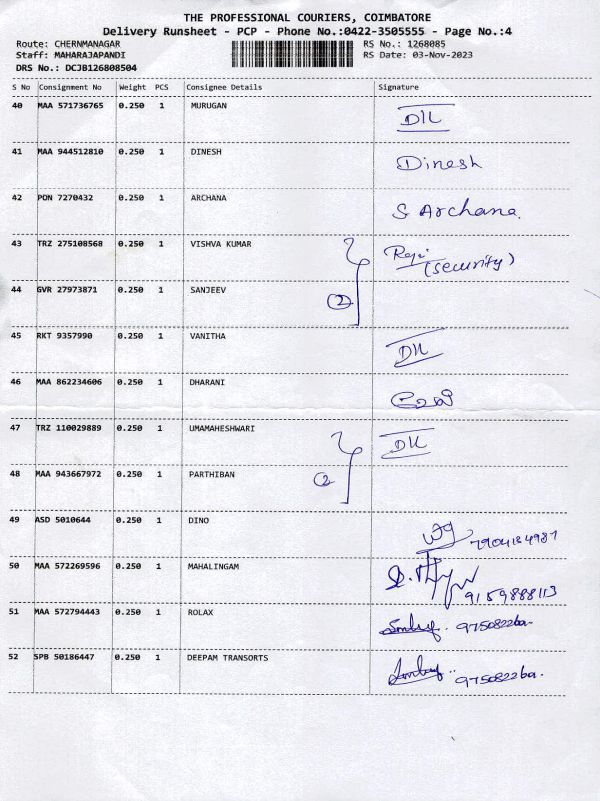 THE PROFESSIONAL COURIERS, COIMBATORE
Delivery Runsheet - PCP - Phone No.:0422-3505555 - Page No.:4
Route: CHERNMANAGAR RS No.: 1268085
Staff: MAHARAJAPANDI RS Date: 03-Nov-2023
DRS No.: DCJB126808504
S No Consignment No Weight PCS Consignee Details Signature
40 MAA 571736765 0.250 1 MURUGAN DIL
41 MAA 944512810 0.250 1 DINESH Dinesh
42 PON 7270432 0.250 1 ARCHANA S Archana.
43 TRZ 275108568 0.250 1 VISHVA KUMAR Raji
(security)
44 GVR 27973871 0.250 1 SANJEEV 2
45 RKT 9357990 0.250 1 VANITHA DIL
46 MAA 862234606 0.250 1 DHARANI
47 TRZ 110029889 0.250 1 UMAMAHESHWARI DIL
48 MAA 943667972 0.250 1 PARTHIBAN 2
49 ASD 5010644 0.250 1 DINO
50 MAA 572269596 0.250 1 MAHALINGAM 9159888113
51 MAA 572794443 0.250 1 ROLAX
52 SPB 50186447 0.250 1 DEEPAM TRANSORTS